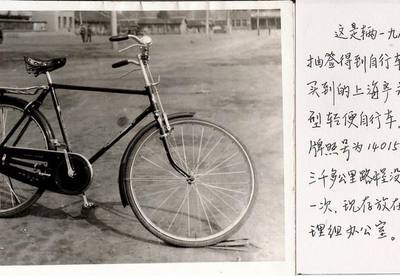 这是辆一九
抽签得到自行车
买到的上海产
型轻便自行车
牌照号为14015
三千多公里路程没
一次、现存放在
理组办公室。